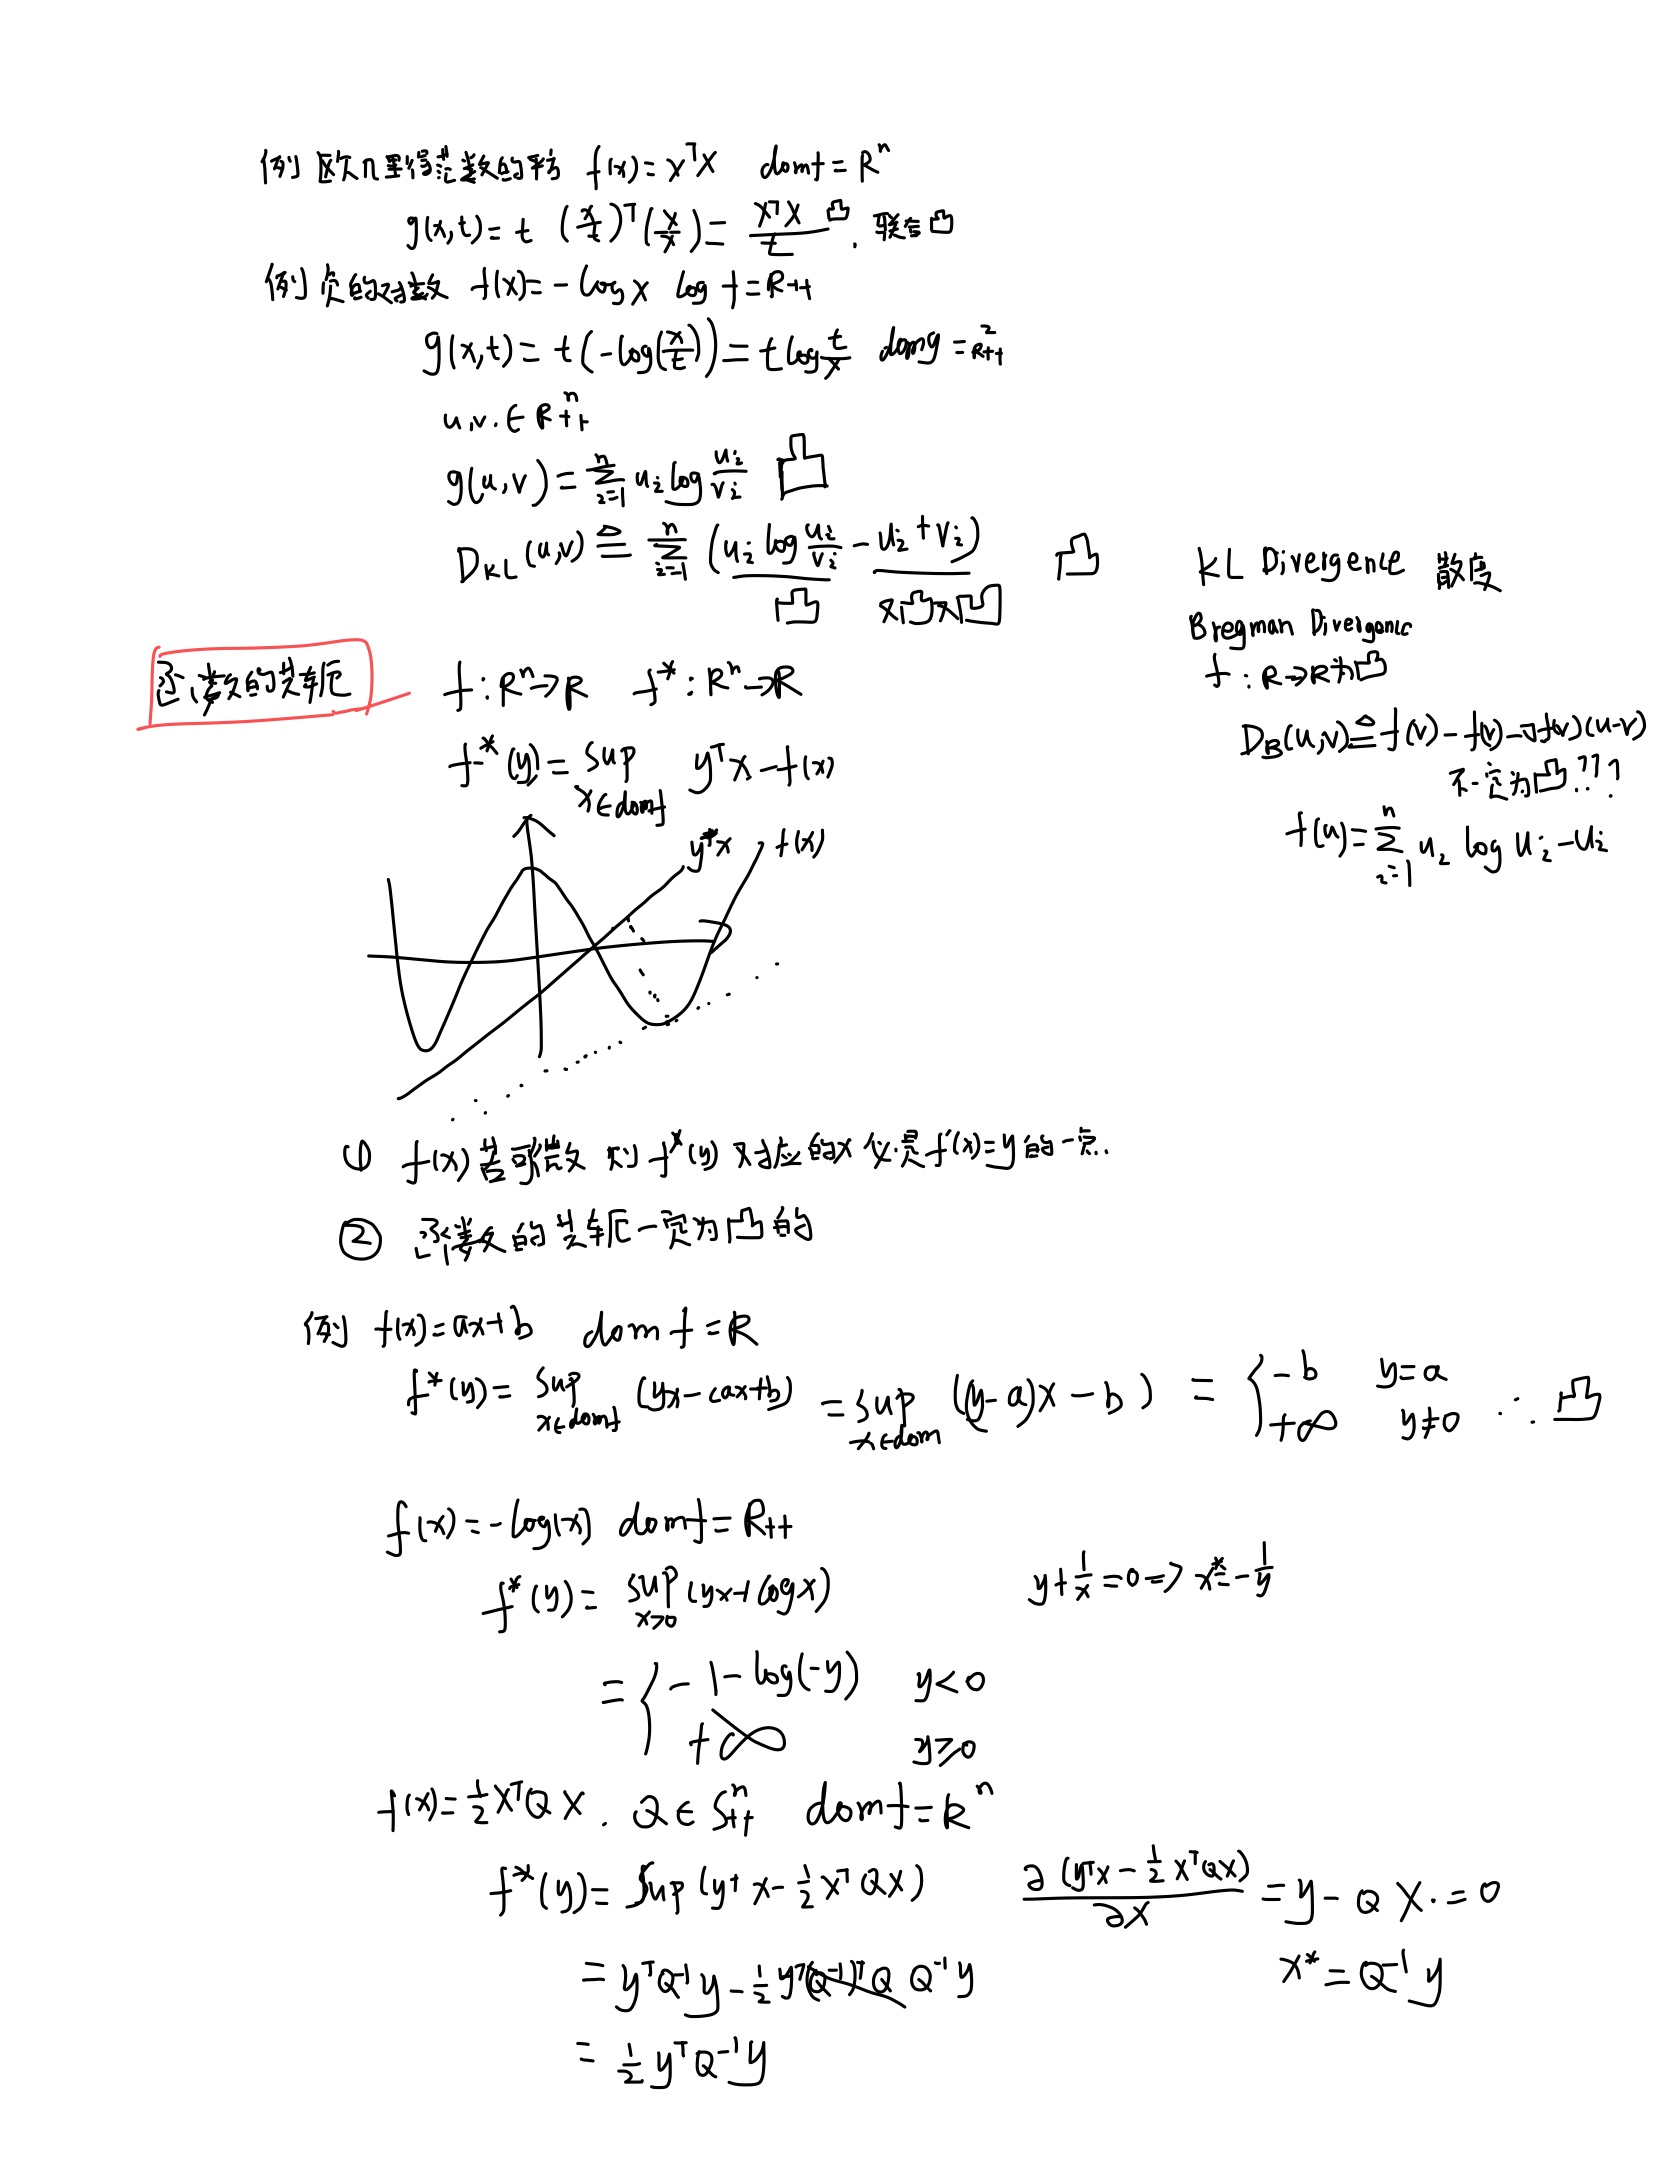 例 欧几里得范数的平方 f(x)=x^T x dom f=R^n
g(x,t)= t (x/t)^T (x/x) = x^T x / t 凸. 联合凸
例 负的对数 f(x)=-log x log f=R++
g(x,t)= t(-log(x/t)) = t log t/x dom g = R^2++
u,v.∈R^n++
g(u,v)=∑_{i=1}^n u_i log u_i/v_i 凸
D_KL(u,v) ≜ ∑_{i=1}^n (u_i log u_i/v_i - u_i + v_i) 凸
凸 x凸x凹
KL Divergence 散度
Bregman Divergence
f : R→R为凸
D_B(u,v)≜f(v)-f(v)-∇f(v)(u-v)
不一定为凸???
f(u)=∑_{i=1}^n u_i log u_i - u_i
函数的共轭 f:R^n→R f^*:R^n→R
f^*(y)= sup_{x∈dom f} y^T x - f(x)
y^T x f(x)
① f(x)若可微 则f^*(y)对应的x必是f'(x)=y的一点.
② 函数的共轭一定为凸的
例 f(x)=ax+b dom f=R
f^*(y)= sup_{x∈dom f} (yx-(ax+b)) = sup_{x∈dom} ((y-a)x-b) = { -b y=a
+∞ y≠0 ∴凸
f(x)=-log(x) dom f=R++
f^*(y)= sup_{x>0} (yx+log x) y+1/x=0 => x^*=-1/y
= { -1-log(-y) y<0
+∞ y≥0
f(x)=1/2 x^T Q x. Q∈S^n_++ dom f=R^n
f^*(y)= sup (y^T x - 1/2 x^T Q x) ∂(y^T x - 1/2 x^T Q x)/∂x = y - Q x. = 0
= y^T Q^-1 y - 1/2 y^T (Q^-1)^T Q Q^-1 y x^* = Q^-1 y
= 1/2 y^T Q^-1 y